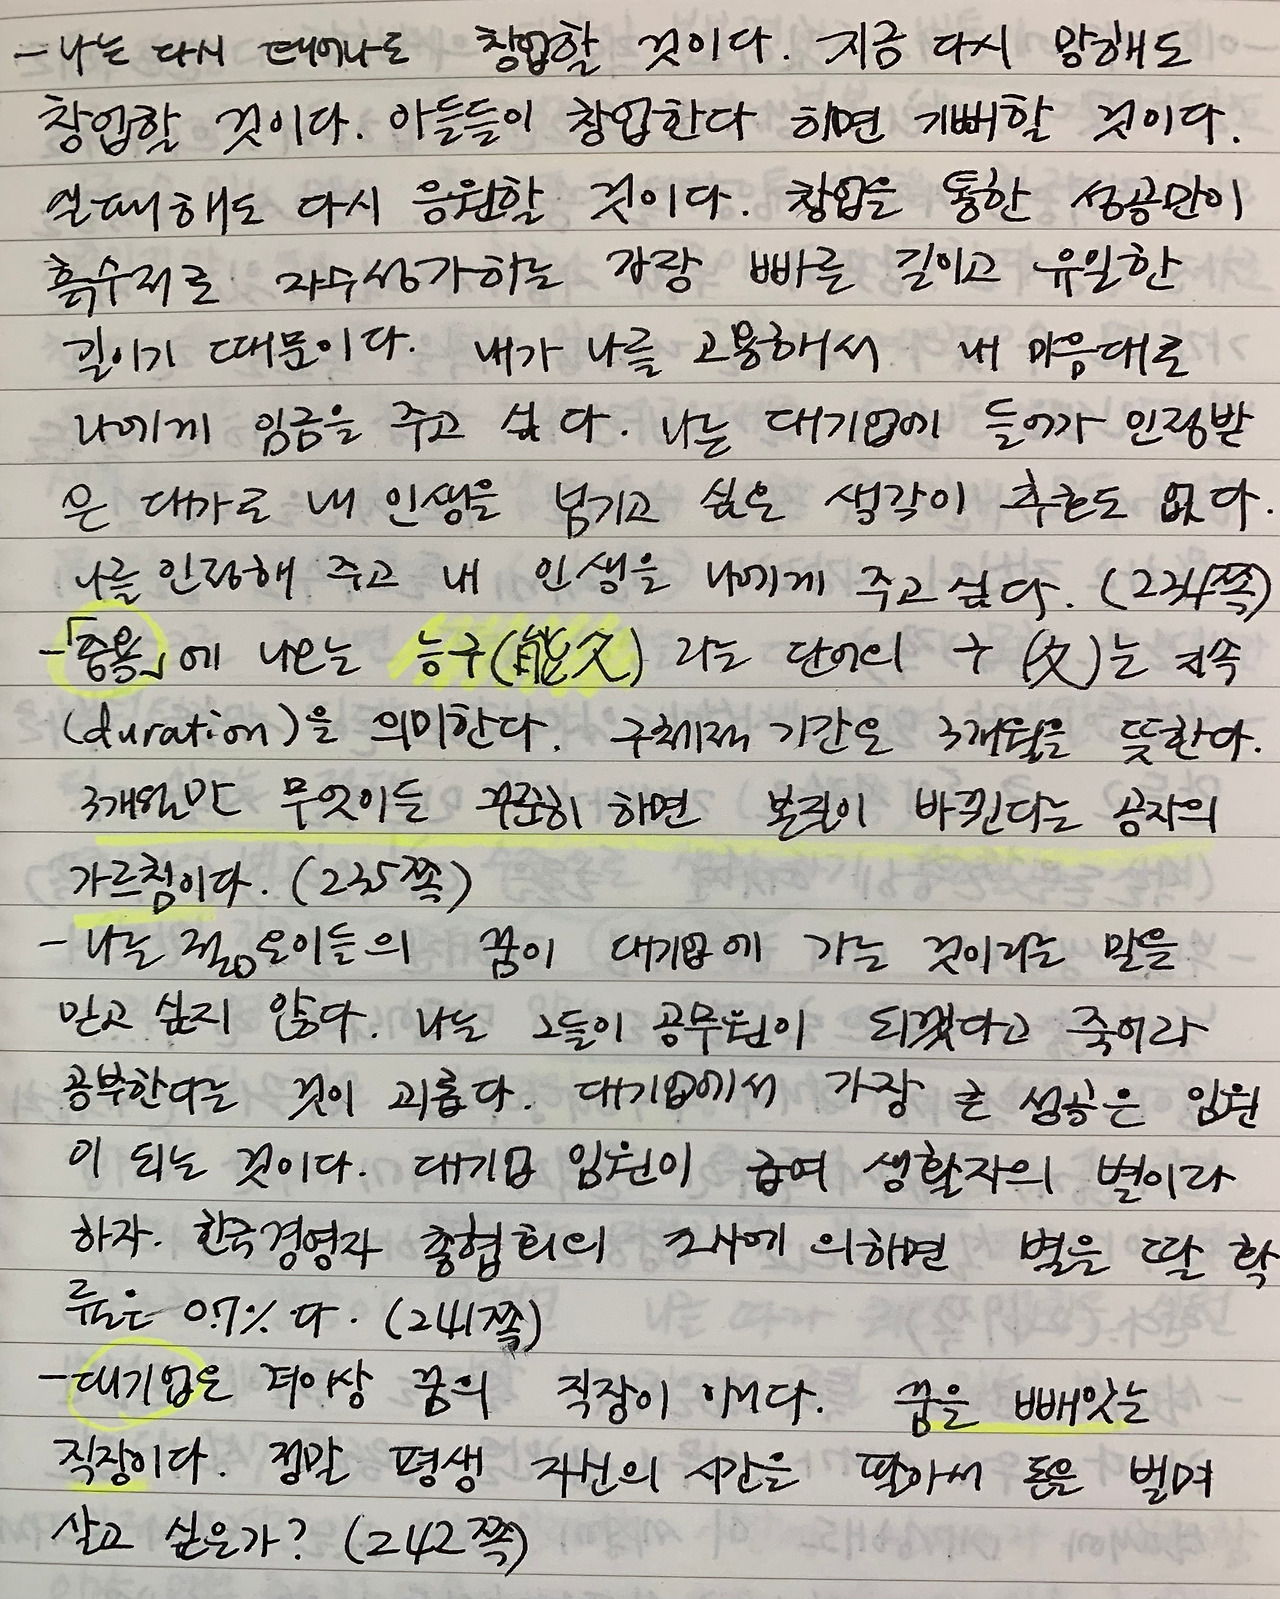 - 나는 다시 태어나도 창업할 것이다. 지금 다시 망해도
창업할 것이다. 아들들이 창업한다 하면 기뻐할 것이다.
실패해도 다시 응원할 것이다. 창업을 통한 성공만이
흙수저로 자수성가하는 가장 빠른 길이고 유일한
길이기 때문이다. 내가 나를 고용해서 내 마음대로
나에게 임금을 주고 싶다. 나는 대기업에 들어가 인정받
은 대가로 내 인생을 넘기고 싶은 생각이 추호도 없다.
나를 인정해 주고 내 인생을 나에게 주고 싶다. (234쪽)
-「중용」에 나오는 능구(能久) 라는 단어의 구 (久)는 지속
(duration)을 의미한다. 구체적 기간은 3개월을 뜻한다.
3개월만 무엇이든 꾸준히 하면 본질이 바뀐다는 공자의
가르침이다. (235쪽)
- 나는 젊은이들의 꿈이 대기업에 가는 것이라는 말을
믿고 싶지 않다. 나는 그들이 공무원이 되겠다고 죽어라
공부한다는 것이 괴롭다. 대기업에서 가장 큰 성공은 임원
이 되는 것이다. 대기업 임원이 급여 생활자의 별이라
하자. 한국경영자 총협회의 조사에 의하면 별을 딸 확
률은 0.7%다. (241쪽)
- 대기업은 더이상 꿈의 직장이 아니다. 꿈을 빼앗는
직장이다. 정말 평생 자신의 시간을 팔아서 돈을 벌며
살고 싶은가? (242쪽)